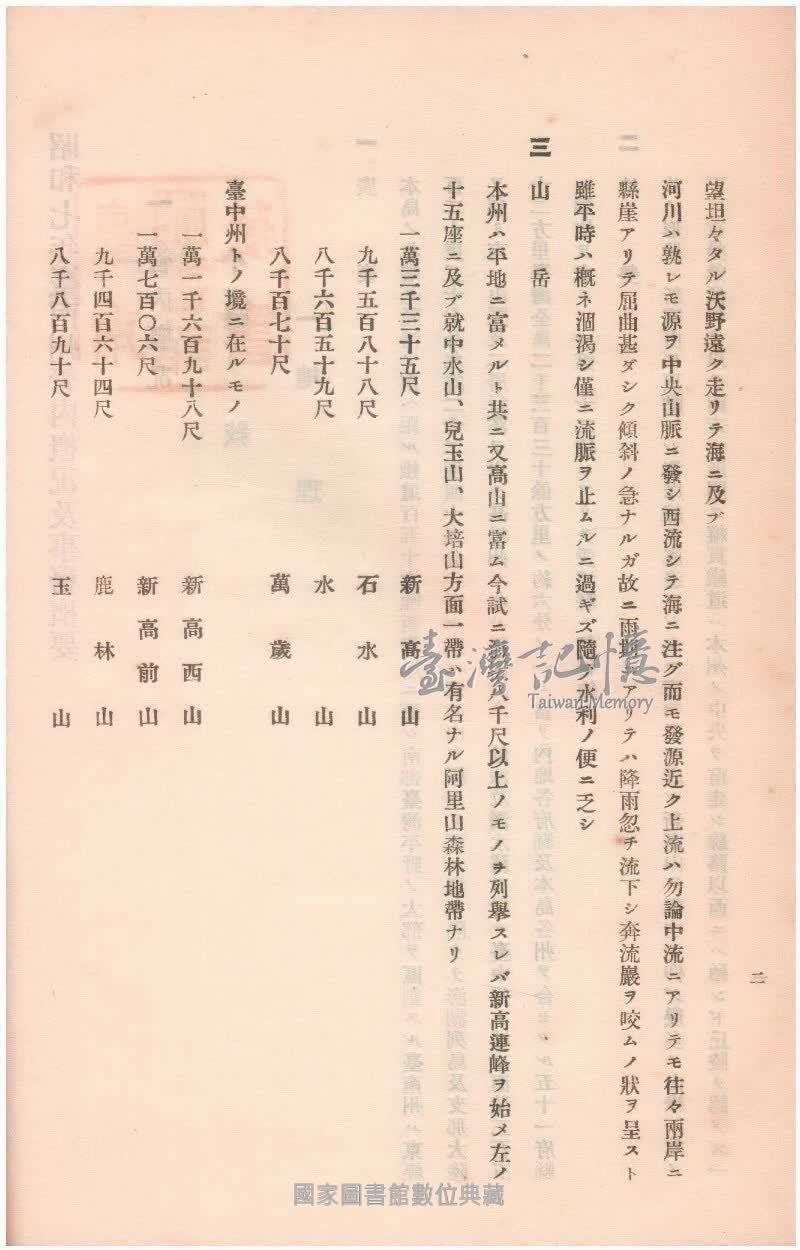 望坦々タル沃野遠ク走リテ海ニ及ブ
河川ハ孰レモ源ヲ中央山脈ニ發シ西流シテ海ニ注グ而モ發源近ク上流ハ勿論中流ニアリテモ往々兩岸ニ
懸崖アリテ屈曲甚ダシク傾斜ノ急ナルガ故ニ雨期ニアリテハ降雨忽チ流下シ奔流巖ヲ咬ムノ狀ヲ呈スト
雖平時ハ概ネ涸渇シ僅ニ流脈ヲ止ムルニ過ギズ隨ブ水利ノ便ニ乏シ
三 山岳
本州ハ平地ニ富メルト共ニ又高山ニ富ム今試ニ八千尺以上ノモノヲ列擧スレバ新高連峰ヲ始メ左ノ
十五座ニ及ブ就中水山、兒玉山、大培山方面一帶ハ有名ナル阿里山森林地帶ナリ
一萬三千三十五尺 新高山
九千五百八十八尺 石水山
八千六百五十九尺 水山
八千百七十尺 萬歲山
臺中州トノ境ニ在ルモノ
一萬一千六百九十八尺 新高西山
一萬七百〇六尺 新高前山
九千四百六十四尺 鹿林山
八千八百九十尺 玉山
二
臺灣記憶
Taiwan Memory
國家圖書館數位典藏